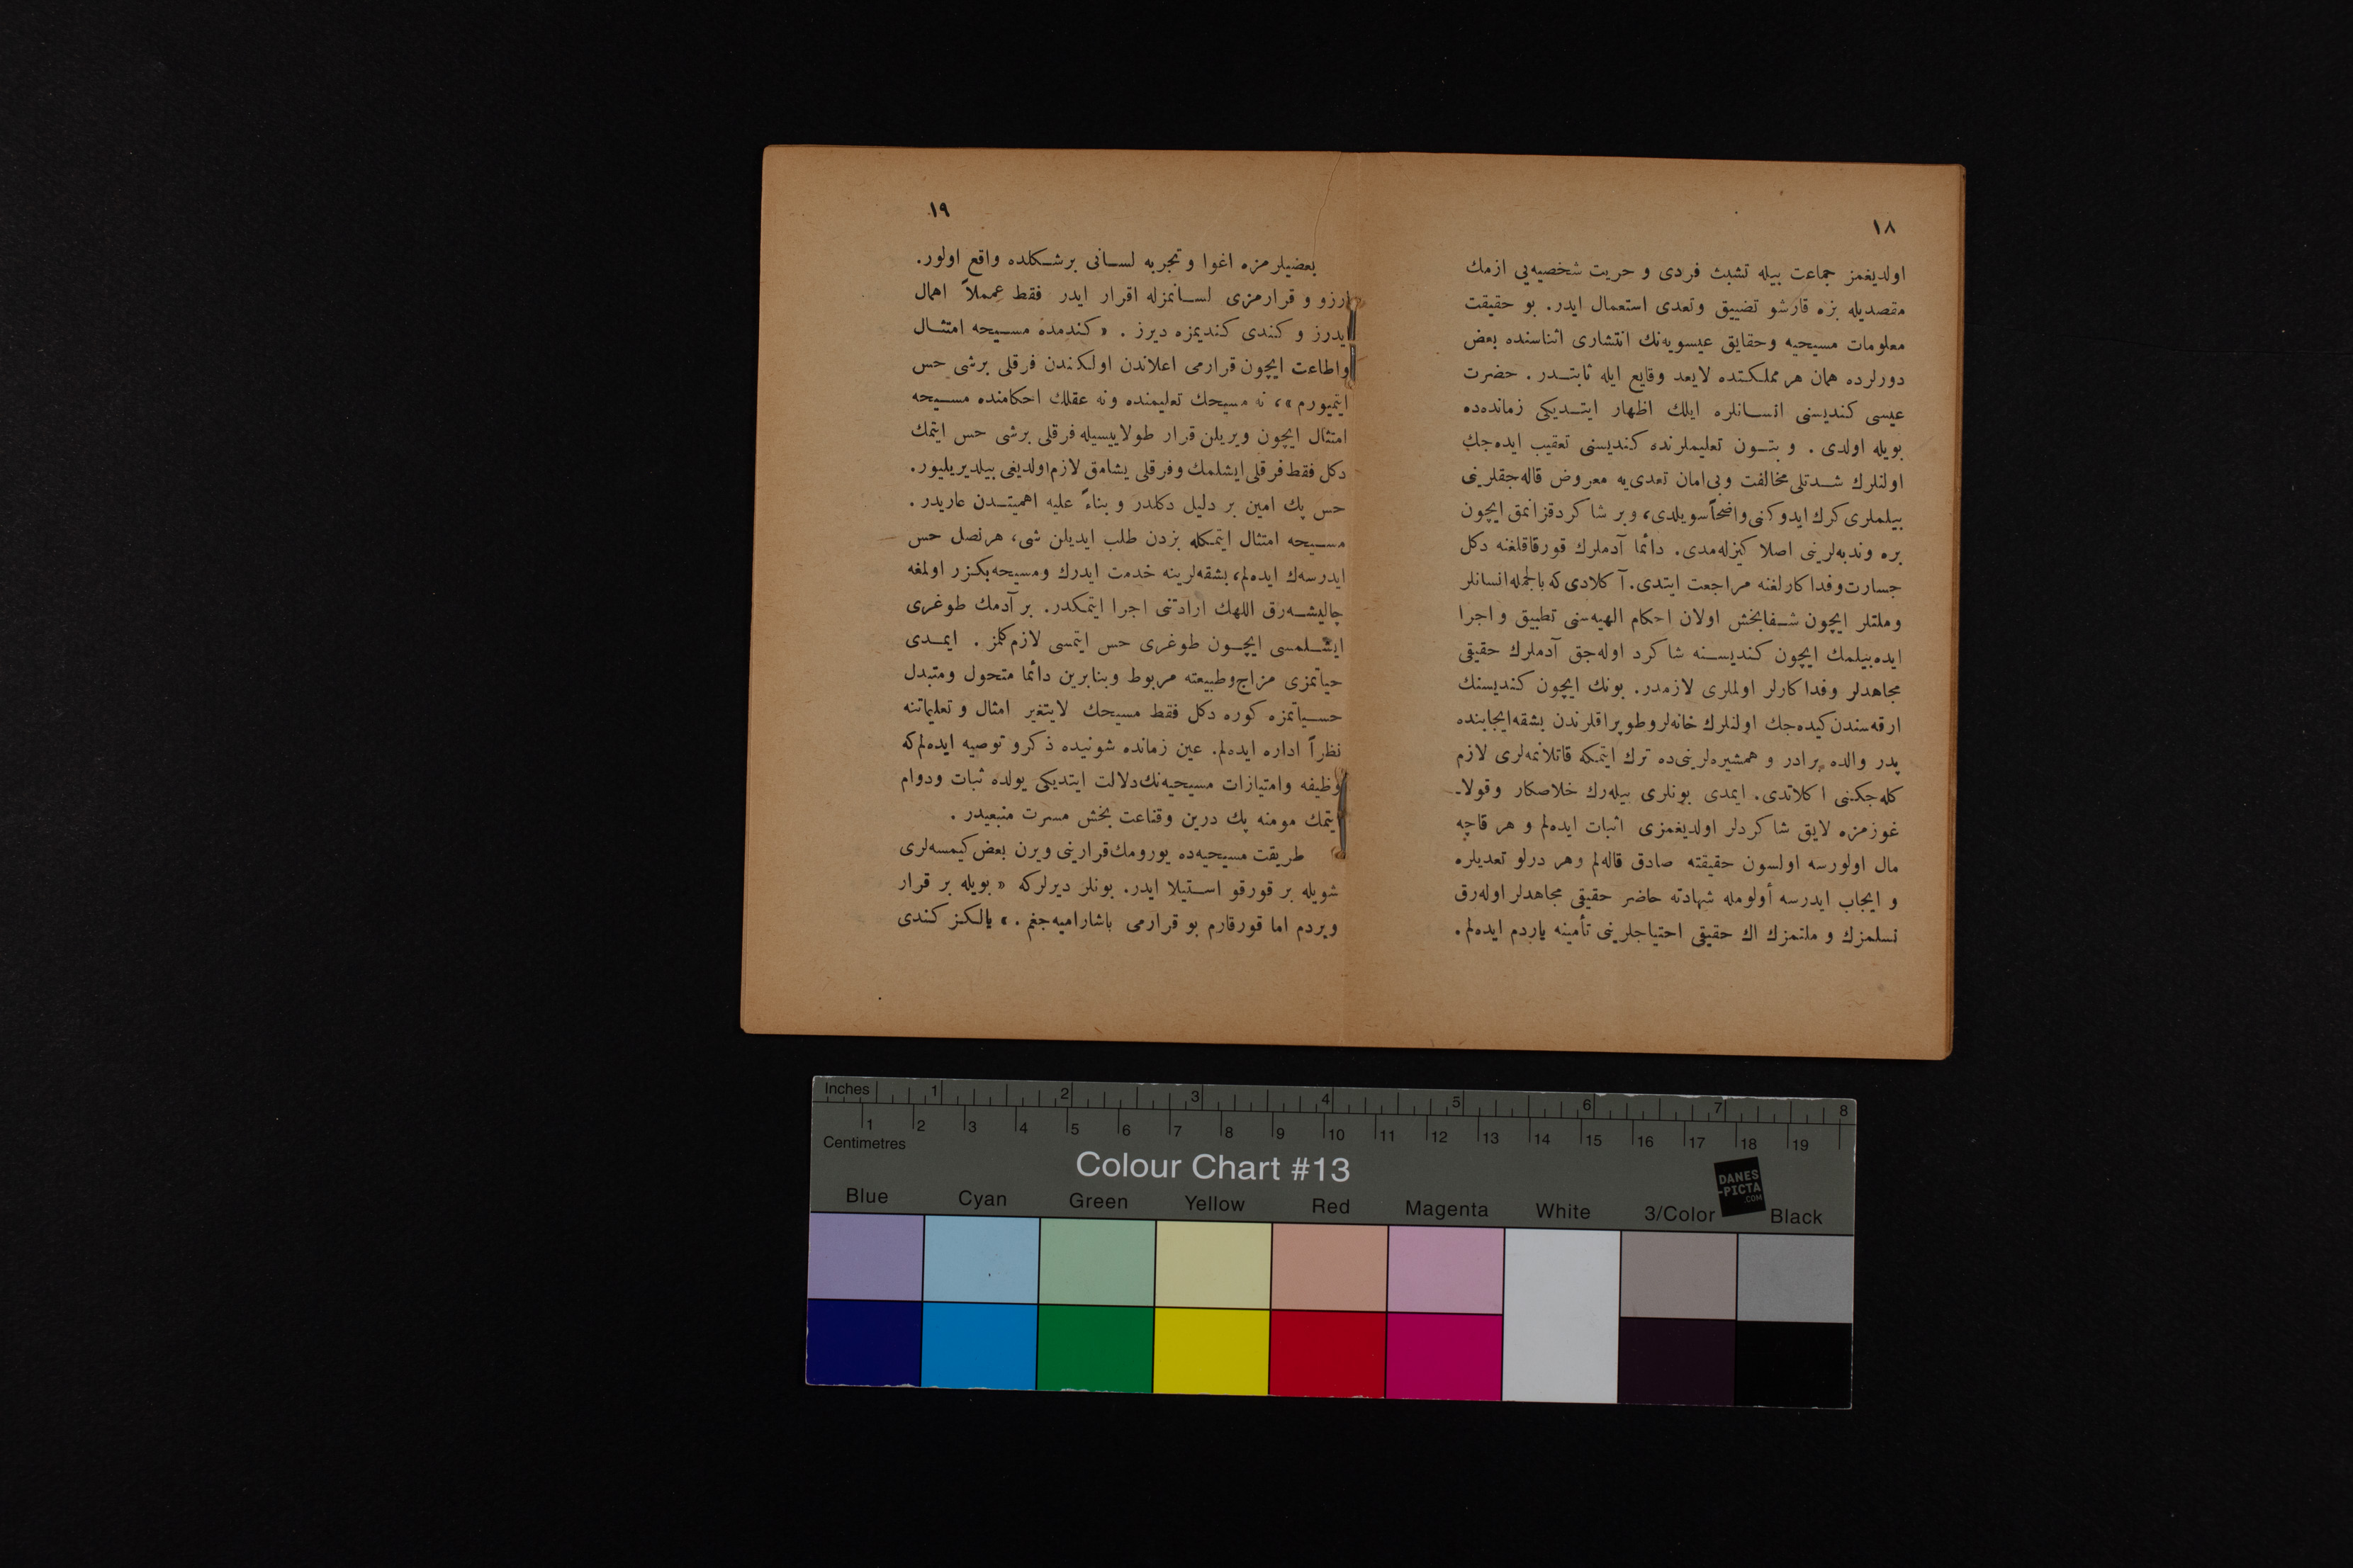 ١٨
اولدیغمز جماعت بیله تشبث فردی و حریت شخصیه‌یی ازمك
مقصدیله بزه قارشو تضییق وتعدی استعمال ایدر. بو حقیقت
معلومات مسیحیه وحقایق عیسویه‌نك انتشاری اثناسنده بعض
دورلرده همان هر مملكتده لایعد وقایع ایله ثابتـدر. حضرت
عیسی كندیسنی انسـانلره ایلك اظهار ایتـدیكی زمانده‌ده
بویله اولدی. و بتـون تعلیملرنده كندیسنی تعقیب ایده‌جك
اولنلرك شـدتلی مخالفت وبی‌امان تعدی‌یه معروض قاله‌جقلرینی
بیلملری كرك ایدوكنی واضحاً سویلدی، وبر شاكرد قزانمق ایچون
بره وندبه‌لرینی اصلا كیزله‌مدی. دائما آدملرك قورقاقلغنه دكل
جسارت‌وفداكارلغنه مراجعت ایتدی. آكلادی كه بالجمله انسانلر
وملتلر ایچون شـفابخش اولان احكام الهیه‌سنی تطبیق و اجرا
ایده‌بیلمك ایچون كندیسـنه شاكرد اوله‌جق آدملرك حقیقی
مجاهدلر وفداكارلر اولملری لازمدر. بونك ایچون كندیسنك
ارقه‌سندن كیده‌جك اولنلرك خانه‌لروطوپراقلرندن بشقه‌ایجابنده
پدر والده برادر و همشیره‌لرینی‌ده ترك ایتمكه قاتلانمه‌لری لازم
كله‌جكنی اكلاتدی. ایمدی بونلری بیله‌رك خلاصكار وقولا-
غوزمزه لایق شاكردلر اولدیغمزی اثبات ایده‌لم و هر قاچه
مال اولورسه اولسون حقیقته صادق قاله‌لم وهر درلو تعدیلره
و ایجاب ایدرسه أولومله شهادته حاضر حقیقی مجاهدلر اوله‌رق
نسلمزك و ملتمزك اك حقیقی احتیاجلرینی تأمینه یاردم ایده‌لم.
١٩
بعضیلرمزه اغوا وتجربه لسـانی برشـكلده واقع اولور.
ارزو و قرارمزی لسـانمزله اقرار ایدر فقط عملاً اهمال
ایدرز و كندی كندیمزه دیرز. « كندمده مسـیحه امتثـال
واطاعت ایچون قرارمی اعلاندن اولكندن فرقلی برشی حس
ایتمیورم »، نه مسیحك تعلیمنده ونه عقلك احكامنده مسـیحه
امتثال ایچون ویریلن قرار طولاییسیله فرقلی برشی حس ایتمك
دكل فقط فرقلی ایشلمك وفرقلی یشامق لازم اولدیغی بیلدیریلیور.
حس پك امین بر دلیل دكلدر و بناءً علیه اهمیتـدن عاریدر.
مسـیحه امتثال ایتمكله بزدن طلب ایدیلن شی، هرنصل حس
ایدرسه‌ك ایده‌لم، بشقه‌لرینه خدمت ایدرك ومسیحه‌بكزر اولمغه
چالیشـه‌رق اللهك ارادتنی اجرا ایتمكدر. بر آدمك طوغری
ایشـلمسی ایچـون طوغری حس ایتمسی لازم كلمز. ایمـدی
حیاتمزی مزاج‌وطبیعته مربوط وبنابرین دائما متحول ومتبدل
حسـیاتمزه كوره دكل فقط مسیحك لایتغیر امثال و تعلیماتنه
نظراً اداره ایده‌لم. عین زمانده شونیده ذكرو توصیه ایده‌لم‌كه
وظیفه وامتیازات مسیحیه‌نك دلالت ایتدیكی یولده ثبات ودوام
ایتمك مومنه پك درین وقناعت بخش مسرت منبعیدر.
طریقت مسیحیه‌ده یورومك قرارینی ویرن بعض كیمسه‌لری
شویله بر قورقو اسـتیلا ایدر. بونلر دیرلركه « بویله بر قرار
ویردم اما قورقارم بو قرارمی باشارامیه‌جغم. » یالكز كندی
Inches 1 2 3 4 5 6 7 8
1 2 3 4 5 6 7 8 9 10 11 12 13 14 15 16 17 18 19
Centimetres
Colour Chart #13
DANES
-PICTA
.COM
Blue Cyan Green Yellow Red Magenta White 3/Color Black